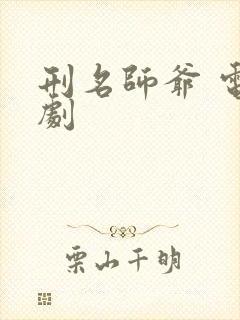 刑名師爺 電
劇
栗山千明